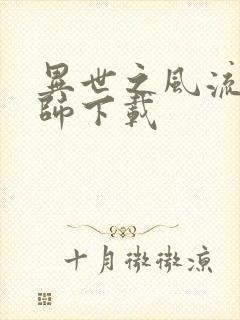 異世之風流
師下載
十月微微涼